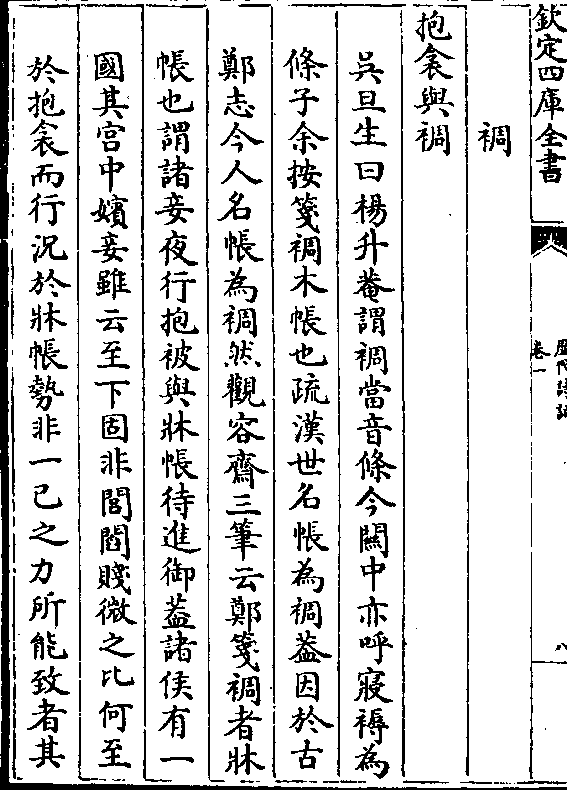 欽定四庫全書
卷一
八
裯
抱衾與裯
吳旦生曰楊升菴謂裯當音條今闗中亦呼寢褥為
條子余按箋裯木帳也疏漢世名帳為裯葢因於古
鄭志今人名帳為裯然觀容齋三筆云鄭箋裯者牀
帳也謂諸妾夜行抱被與牀帳待進御葢諸侯有一
國其宫中嬪妾雖云至下固非閭閻賤微之比何至
於抱衾而行況於牀帳勢非一已之力所能致者其